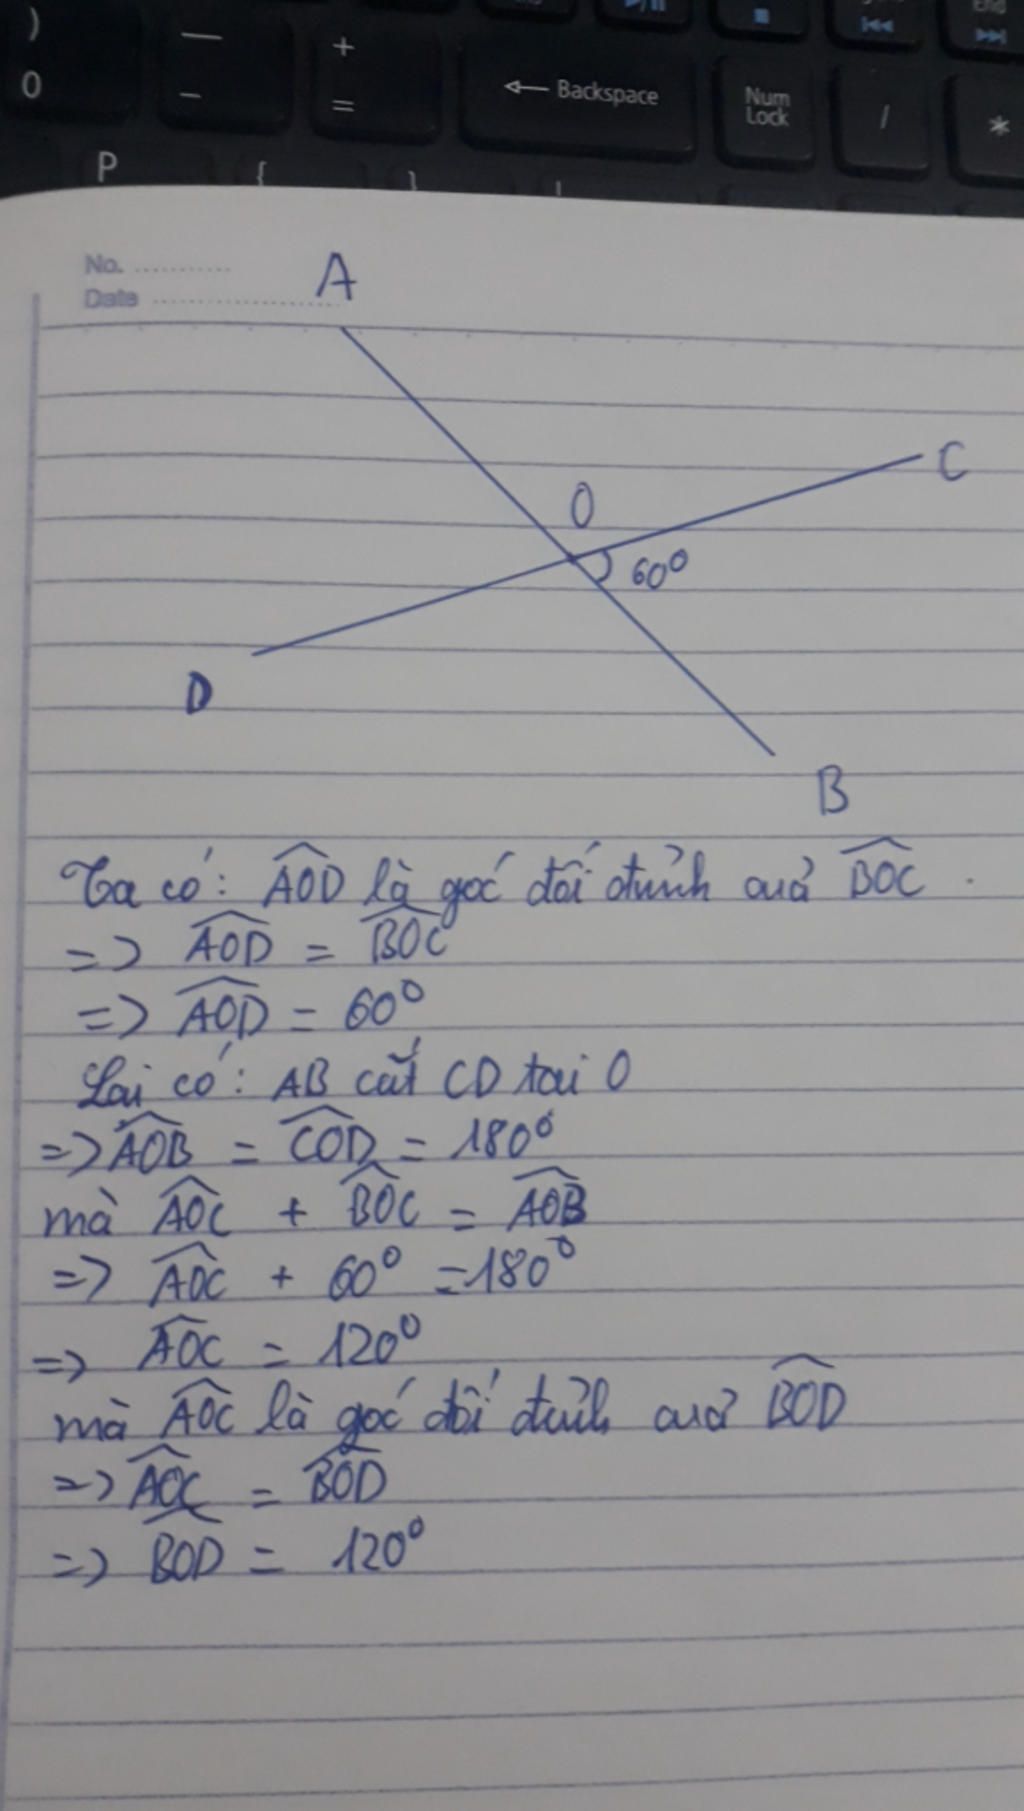 )
0
—
–
+
=
Backspace
Num
Lock
/
End
*
P
{
}
No. ..........
Date ....................
A
C
O
60⁰
D
B
Ta có: \widehat{AOD} là góc đối đỉnh của \widehat{BOC}.
=> \widehat{AOD} = \widehat{BOC}
=> \widehat{AOD} = 60⁰
Lại có: AB cắt CD tại O
=> \widehat{AOB} = \widehat{COD} = 180⁰
mà \widehat{AOC} + \widehat{BOC} = \widehat{AOB}
=> \widehat{AOC} + 60⁰ = 180⁰
=> \widehat{AOC} = 120⁰
mà \widehat{AOC} là góc đối đỉnh của \widehat{BOD}
=> \widehat{AOC} = \widehat{BOD}
=> \widehat{BOD} = 120⁰